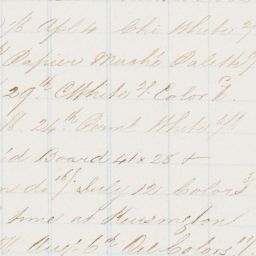 /6 Apl 4 Chi White 2/
Papier Maché Palette 7/
29th C White 2/. Color
24th Permt White 2/6
d Board 41 x 28 +
do 16/. July 12 Colors 3/
time at Kensington
Augt 6th Oil Colors